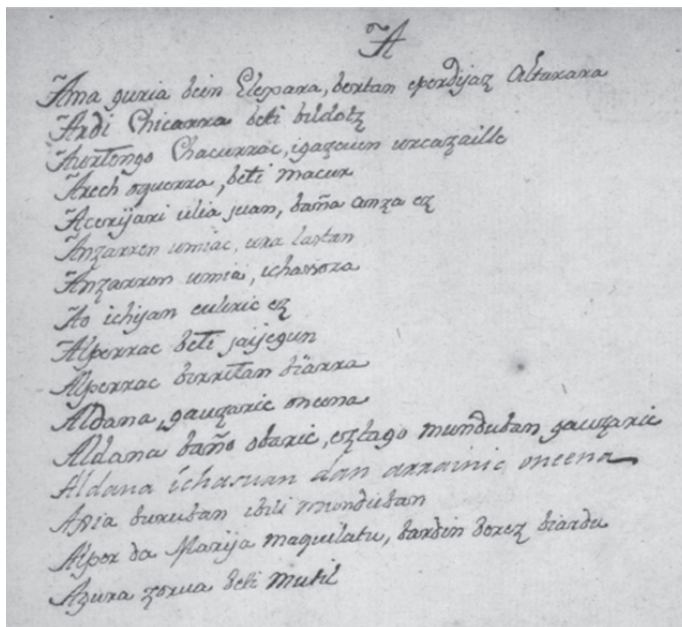 A
Ama guria bein Elexara, bertan eperdijaz Altarara
Ardi Chicarra beti bildotz
Aurtengo Chacurrac, igazcuen urcazaille
Arech oguerra, beti macur
Acerijari ulia juan, baña anza ez
Anzarren umiac, ura lastan
Anzarren umia, ichasora
Ao ichijan euleric ez
Alperrac beti jaijegun
Alperrac birritan biarra
Aldana, gauzaric onena
Aldana baño obaric, eztago mundutan gauzaric
Aldana ichasuan dan arrainic oneena
Apia burutan ibili mundutan
Alper da Marija maquilatu, bardin berez biardu
Azura zorua beti mutil